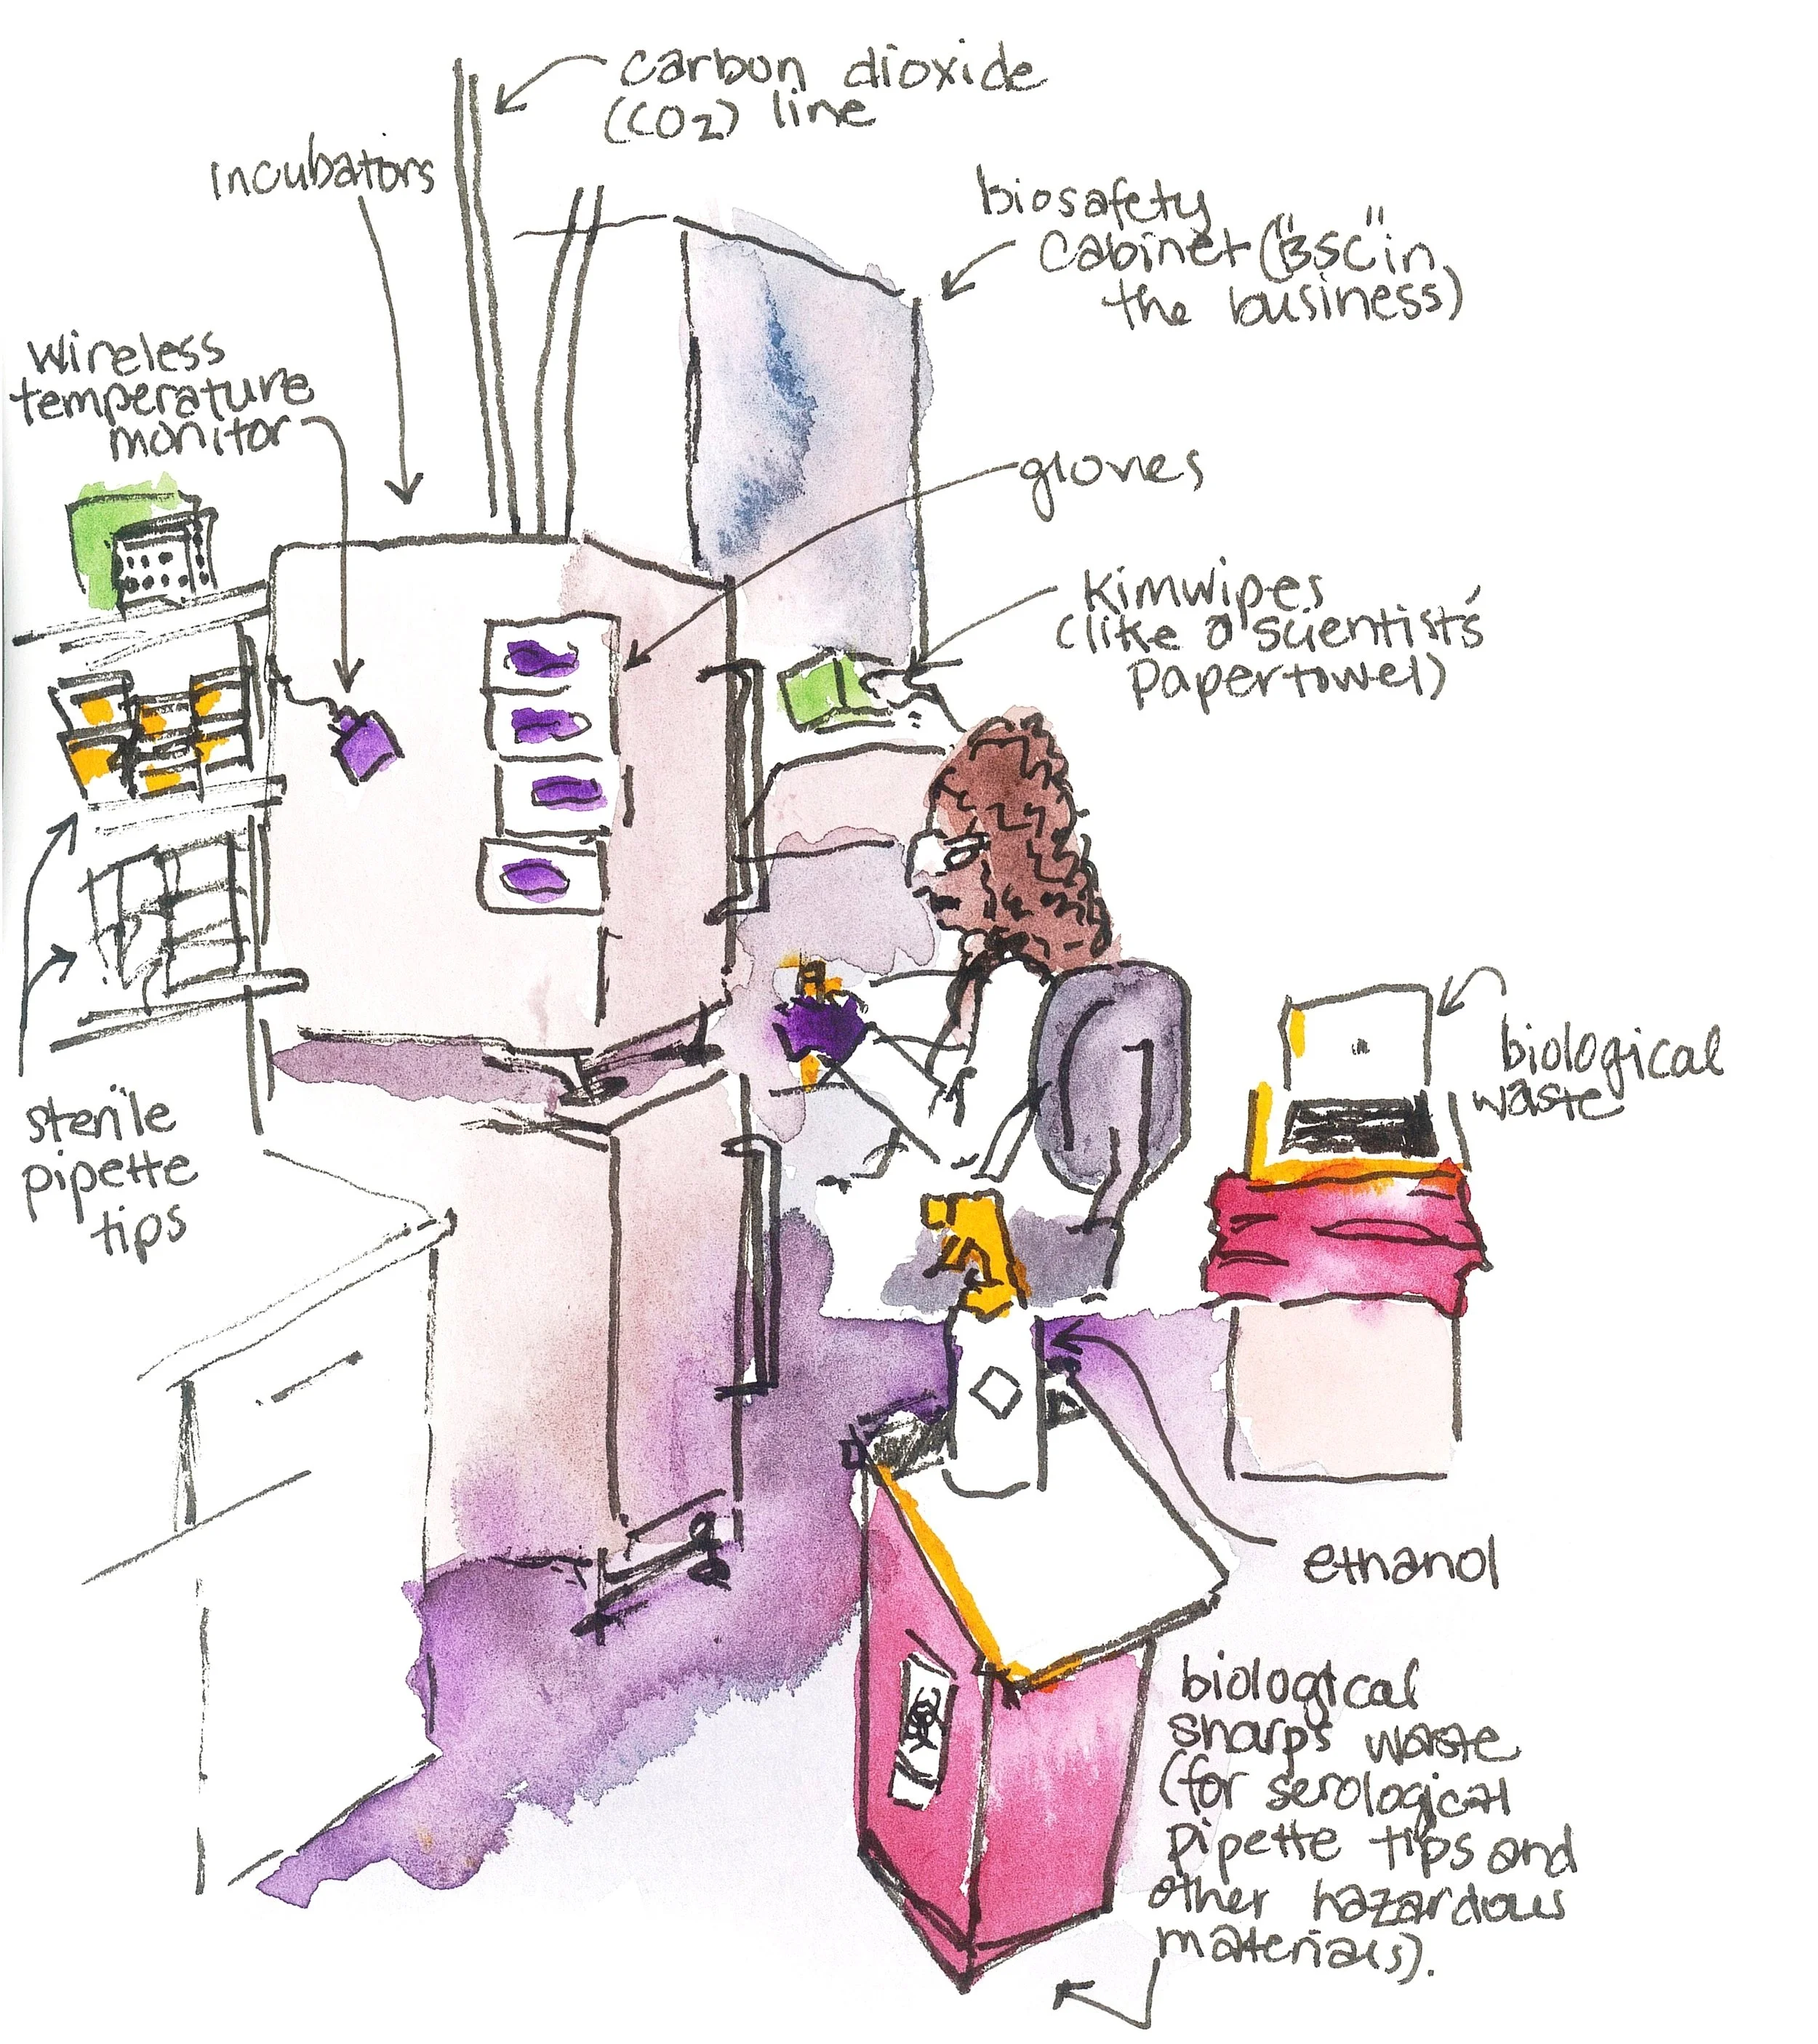 carbon dioxide
(CO2) line
incubators
biosafety
cabinet ("BSC" in
the business)
wireless
temperature
monitor
gloves
Kimwipes
(like a scientist's
papertowel)
biological
waste
sterile
pipette
tips
ethanol
biological
sharps waste
(for serological
pipette tips and
other hazardous
materials).